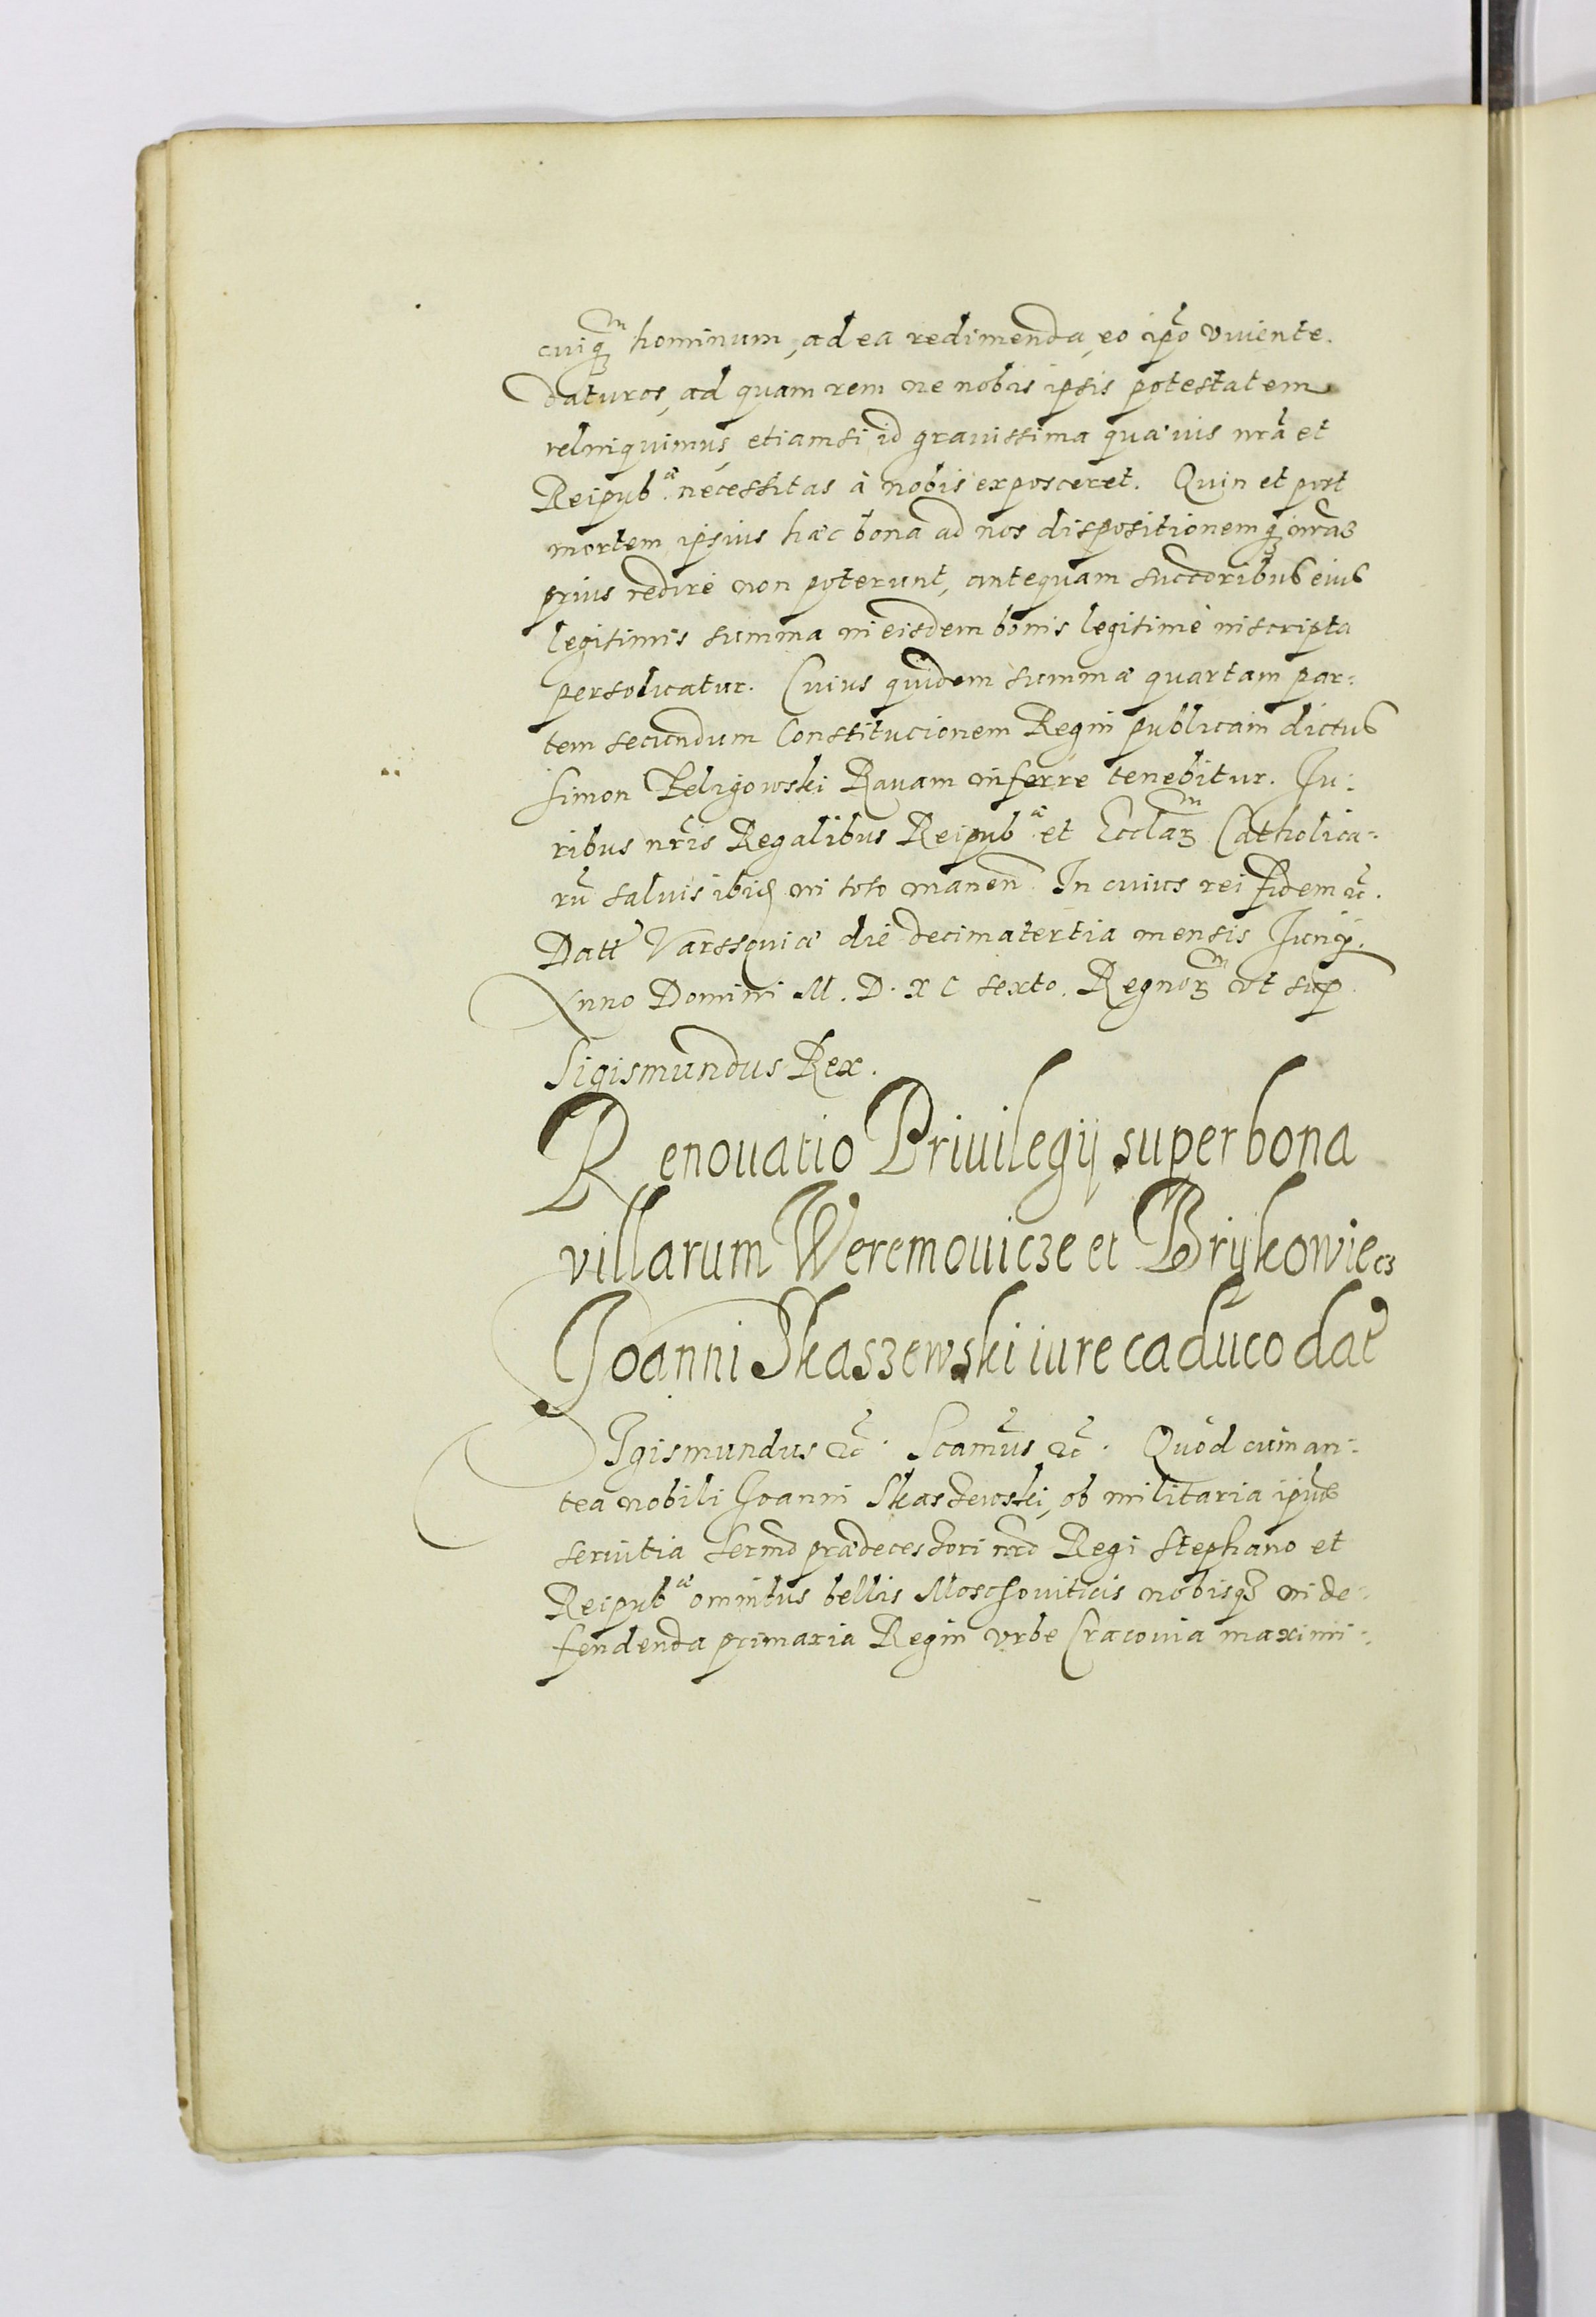 cuiqȝ hominum, ad ea redimenda, eo ip̃o viuente.
daturos, ad quam rem ne nobis ipsis potestatem
relinquimus, etiamsi id grauissima quæuis nr̃a et
Reipubᶜᵃ necessitas à nobis exposceret. Quin et post
mortem ipsius hæc bona ad nos dispositionemqȝ nr̃as
prius redire non poterunt, antequam succ̃oribus eius
legitimis summa in eisdem bonis legitimè inscripta
persoluatur. Cuius quidem summæ quartam par:
tem secundum Constitucionem Regni publicam dictus
Simon Zeligowski Rauam inferre tenebitur. Iu:
ribus nr̃is Regalibus Reipubᶜᵃ et Ecclaꝝ Catholica:
rũ saluis ibiđ in toto manen̄. In cuius rei fidem &c̃.
Datt Varssouiæ die decimatertia mensis Iunij.
Anno Domini M. D. XC sexto. Regnoꝝ vt sup̱
Sigismundus Rex.
Renouatio Priuilegij super bona
villarum Weremouicze et Brykowiecz
Joanni Skaszewski iure caduco dat̃
SIgismundus &c̃. Scamũs &c̃. Quòd cum an:
tea nobili Joanni Skaszewski, ob militaria ip̃ius
seruitia Serm̃o prædecessori nr̃o Regi Stephano et
Reipubᶜᵃ omnibus bellis Moschouiticis nobisqȝ in de:
fendenda primaria Regni vrbe Cracouia maximi: